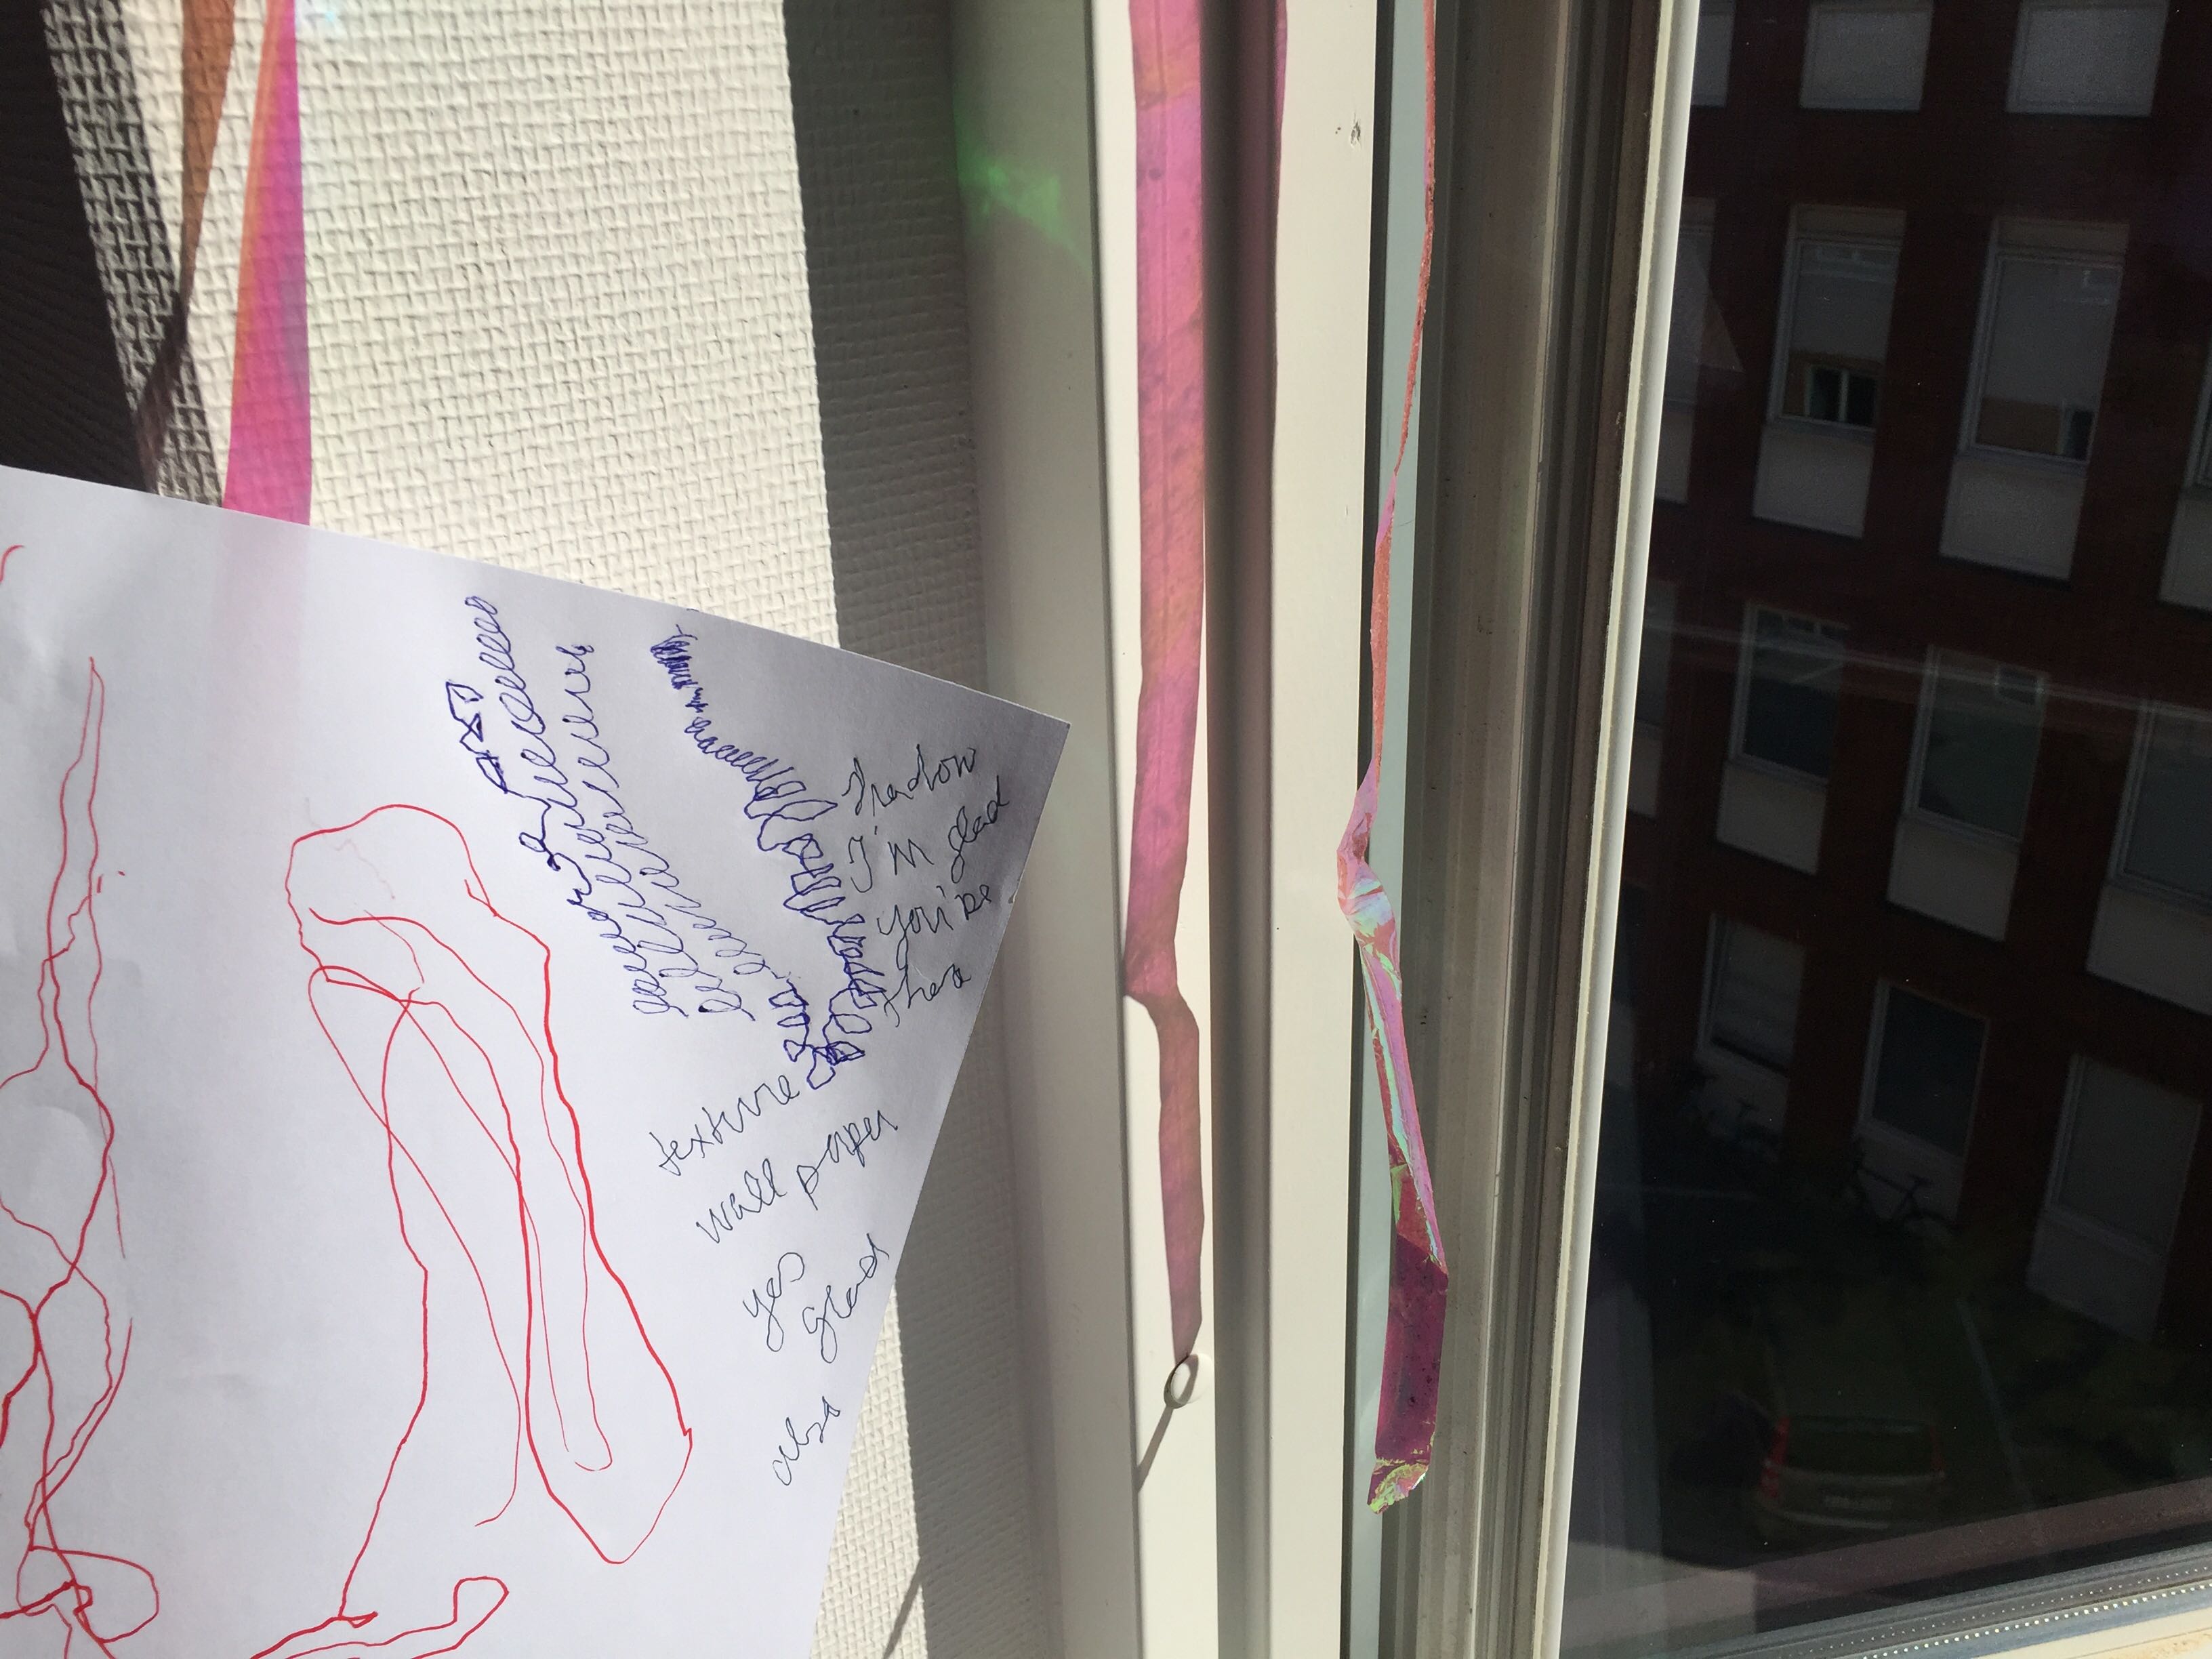 Shadow
I'm glad
you're
there
texture
wall paper
yes
also glad